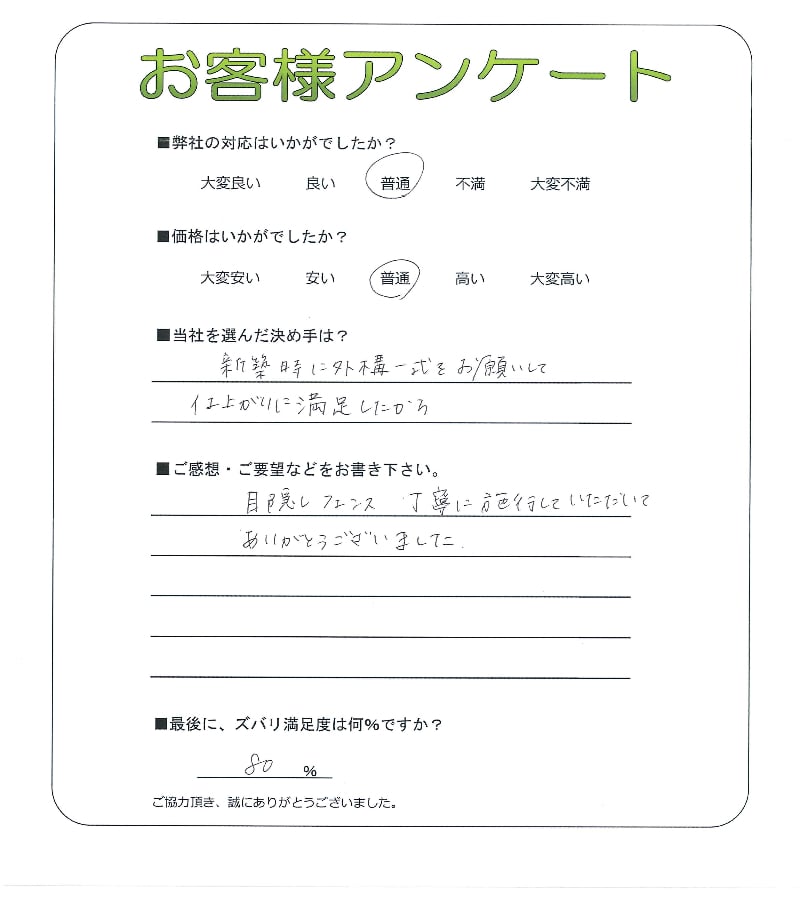 お客様アンケート
■弊社の対応はいかがでしたか？
大変良い 良い 普通 不満 大変不満
■価格はいかがでしたか？
大変安い 安い 普通 高い 大変高い
■当社を選んだ決め手は？
新築時に外構一式をお願いして
仕上がりに満足したから
■ご感想・ご要望などをお書き下さい。
目隠しフェンス 丁寧に施行していただいて
ありがとうございました.
■最後に、ズバリ満足度は何%ですか？
80 %
ご協力頂き、誠にありがとうございました。